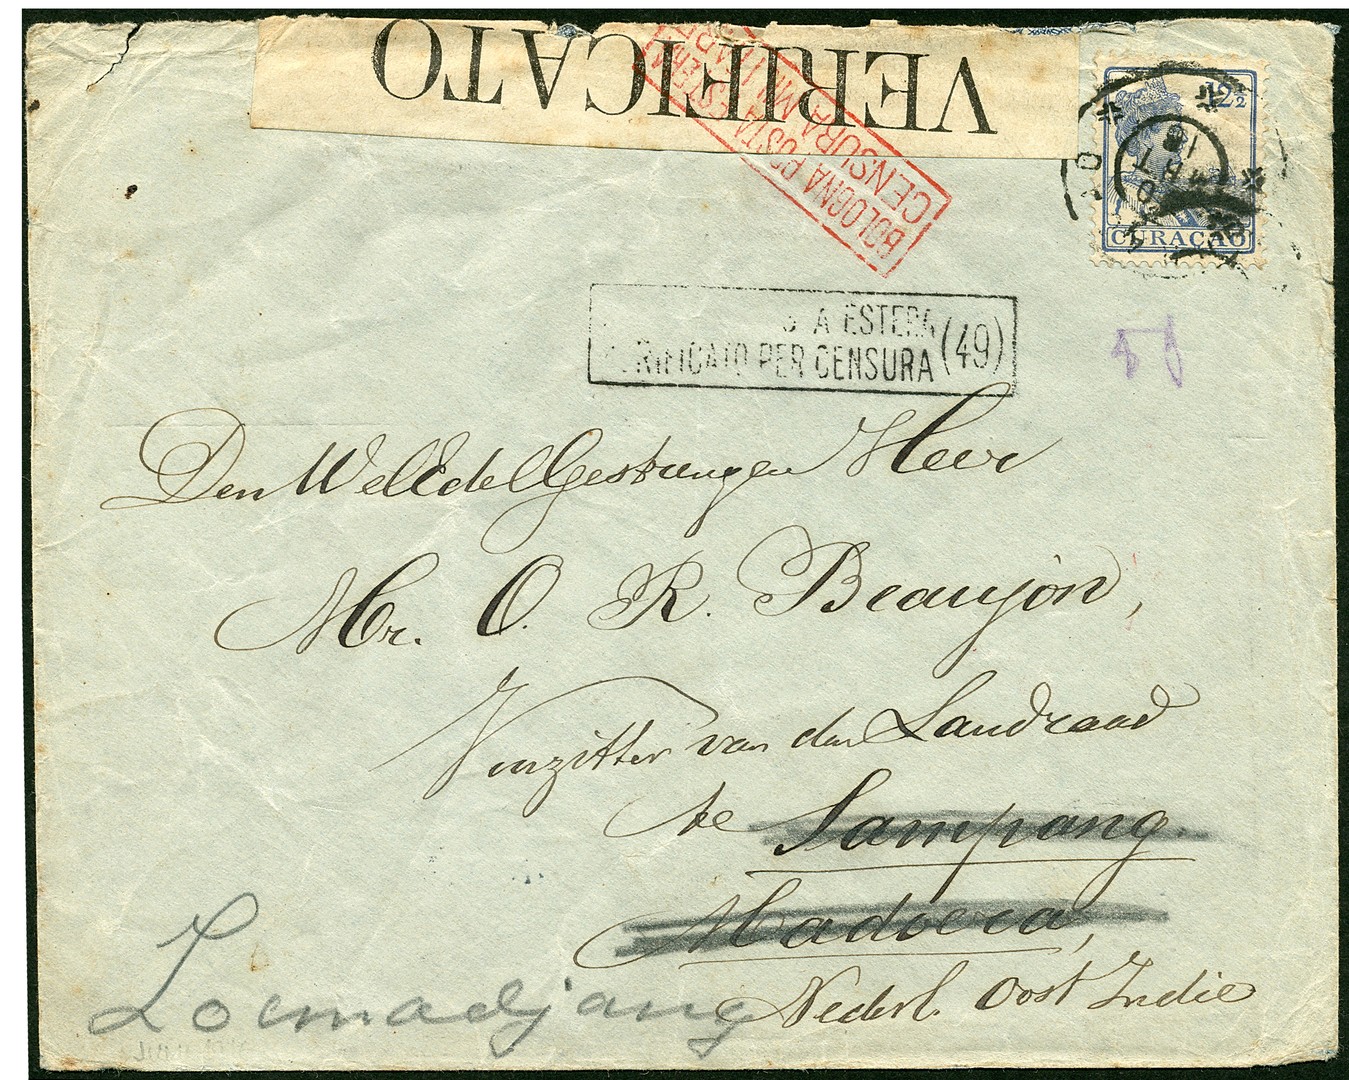 VERIFICATO
BOLOGNA POSTA ESTERA
CENSURA MILITARE
12½
CURAÇAO
A ESTERA
VERIFICATO PER CENSURA (49)
Den WelEdelGestrengen Heer
Mr. O. R. Beaujon,
Voorzitter van den Landraad
te Sampang.
Madoera,
Nederl. Oost Indië
Loemadjang